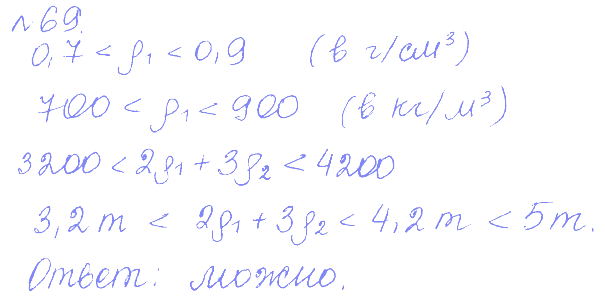 №69.
0,7 < ρ₁ < 0,9 (в г/см³)
700 < ρ₁ < 900 (в кг/м³)
3200 < 2ρ₁ + 3ρ₂ < 4200
3,2 т < 2ρ₁ + 3ρ₂ < 4,2 т < 5 т.
Ответ: можно.